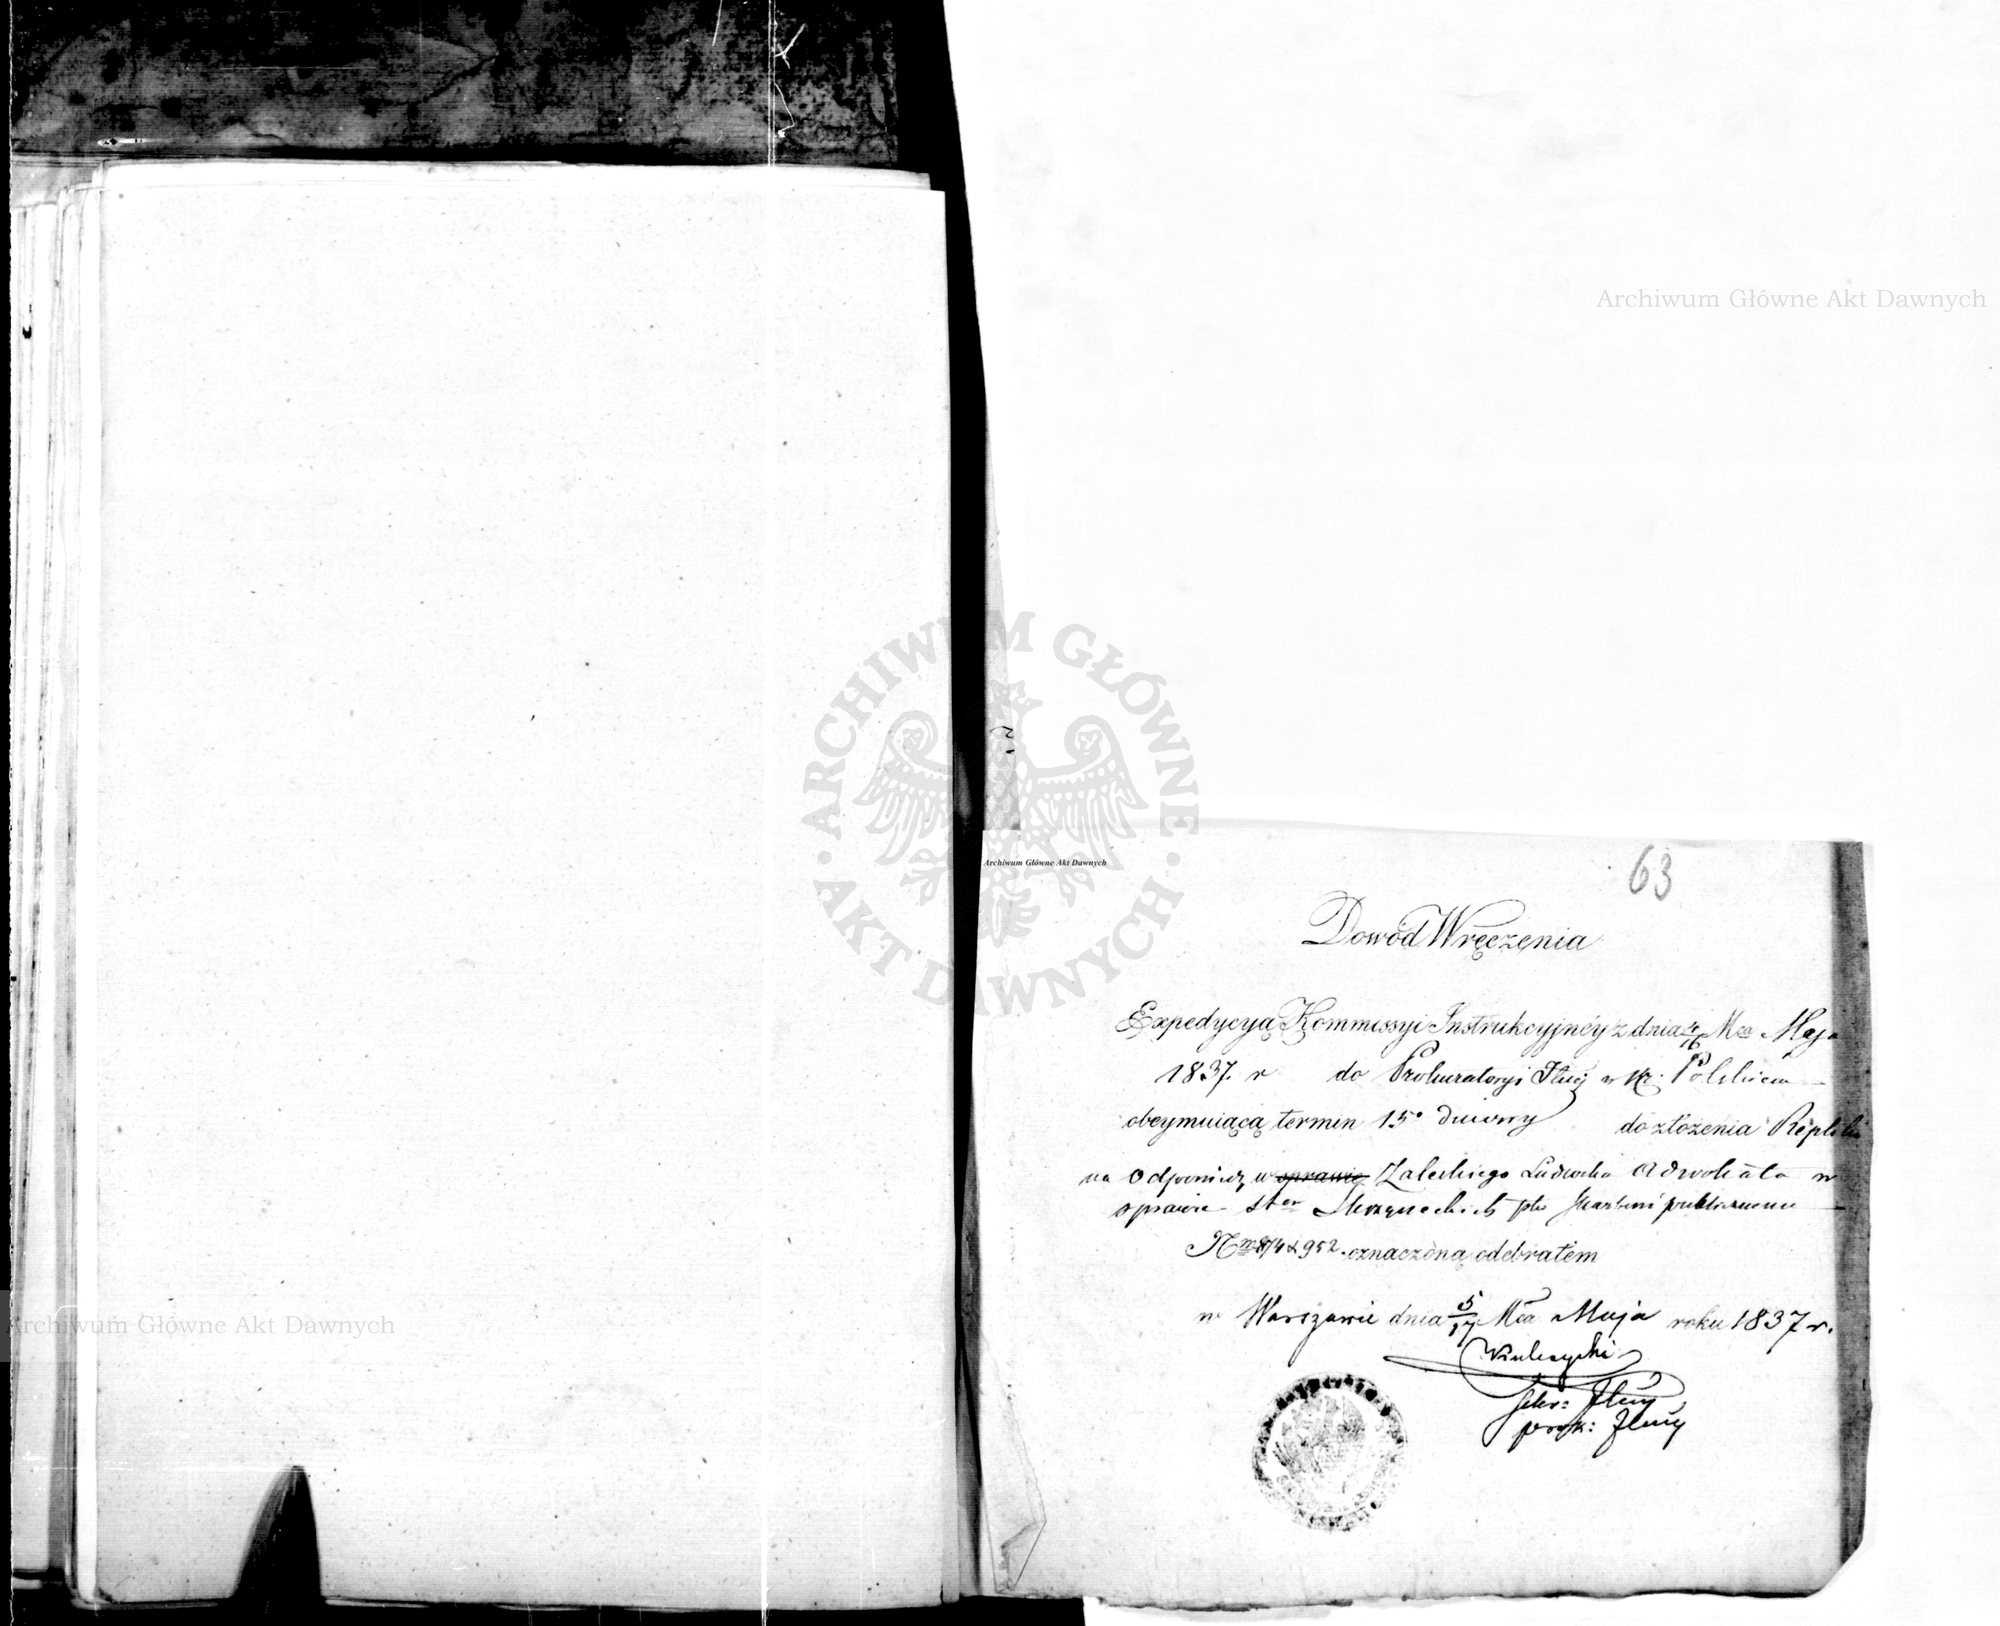 Archiwum Główne Akt Dawnych
ARCHIWUM GŁÓWNE AKT DAWNYCH
Archiwum Główne Akt Dawnych
63
Dowód Wręczenia
Expedycyą Kommissyi Instrukcyjnéy z dnia 4/16 Mca Maja
1837. r do Prokuratoryi w Kr. Polskiem
obeymuiącą termin 15o dniowy do złożenia Repliki
na Odpowiedź w sprawie Zaleskiego Ludwika Adwokata w
sprawie Skrzyneckich pko Skarbowi publicznemu
Nrem 874 & 952. oznaczoną odebrałem
w Warszawie dnia 5/17 Mca Maja roku 1837 r.
Sekr:
prok:
Archiwum Główne Akt Dawnych